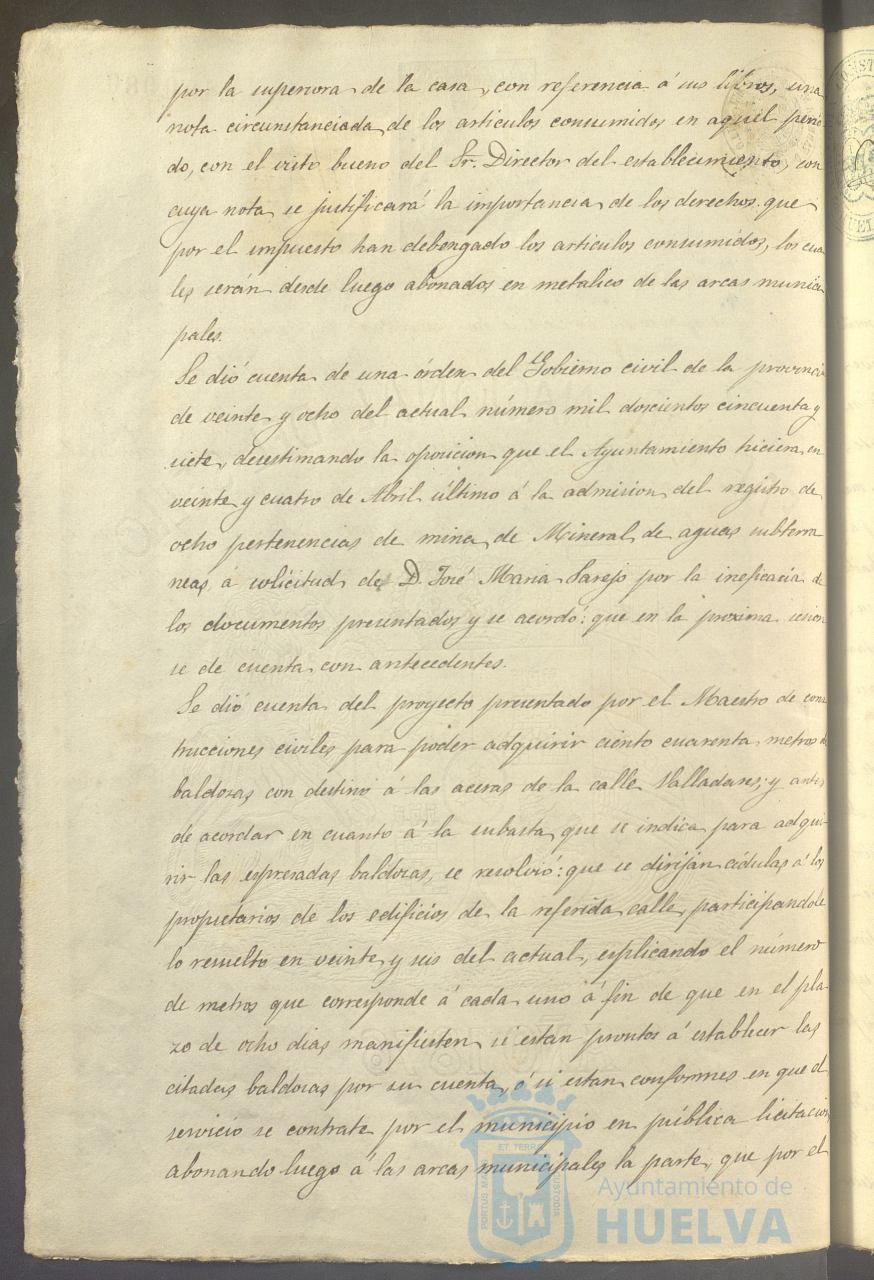 por la superiora de la casa, con referencia á sus libros, una
nota circunstanciada de los articulos consumidos en aquel perio
do, con el visto bueno del Sr. Director del establecimiento, con
cuya nota se justificará la importancia de los derechos que
por el impuesto han debengado los articulos consumidos, los cua
les serán desde luego abonados en metalico de las arcas munici
pales.
Se dió cuenta de una órden del Gobierno civil de la provincia
de veinte y ocho del actual número mil doscientos cincuenta y
siete, desestimando la oposicion que el Ayuntamiento hiciera en
veinte y cuatro de Abril último á la admision del registro de
ocho pertenencias de mina de Mineral de aguas subterra
neas á solicitud de D. José Maria Parejo por la ineficacia de
los documentos presentados y se acordó: que en la proxima sesion
se de cuenta con antecedentes.
Se dió cuenta del proyecto presentado por el Maestro de cons
trucciones civiles para poder adquirir ciento cuarenta metros de
baldosas con destino á las aceras de la calle Valladares; y antes
de acordar en cuanto á la subasta que se indica para adqui-
rir las espresadas baldosas, se resolvió: que se dirijan cédulas á los
propietarios de los edificios de la referida calle, participandole
lo resuelto en veinte y seis del actual, esplicando el número
de metros que corresponde á cada uno á fin de que en el pla
zo de ocho dias manifiesten si estan prontos á establecer las
citadas baldosas por su cuenta, ó si estan conformes en que el
servicio se contrate por el municipio en pública licitacion
abonando luego á las arcas municipales la parte, que por el
PORTUS MARIS
ET TERRE
CUSTODIA
Ayuntamiento de
HUELVA